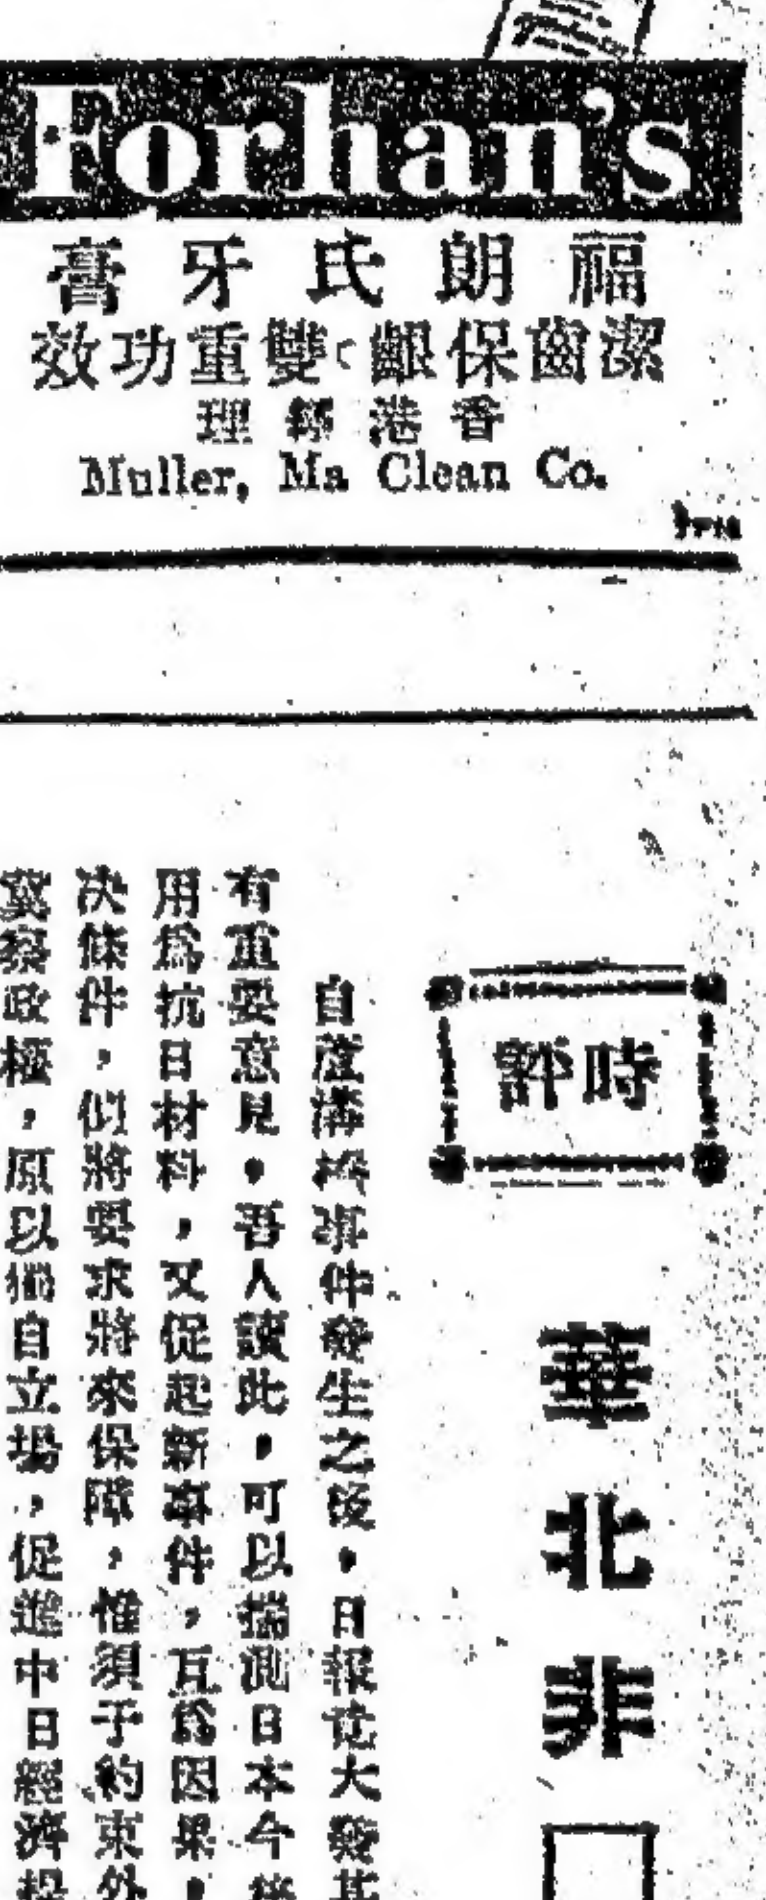 Forhan's
福朗氏牙膏
潔齒保齦雙重功效
香港經理
Muller, Ma Clean Co.
時評
華北非
自蘆溝橋事件發生之後，日報竟大發其
有重要意見，吾人讀此，可以揣測日本今後
用爲抗日材料，又促起新事件，互爲因果，
决條件，似將要求將來保障，惟須于約束外
冀察政權，原以獨自立場，促進中日經濟提